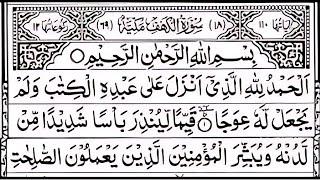 اٰيَاتُهَا ١١٠ (١٨) سُوْرَةُ الْكَهْفِ مَكِّيَّةٌ (٦٩) رُكُوْعَاتُهَا ١٢
بِسْمِ اللّٰهِ الرَّحْمٰنِ الرَّحِيْمِ ○
اَلْحَمْدُ لِلّٰهِ الَّذِيْٓ اَنْزَلَ عَلٰى عَبْدِهِ الْكِتٰبَ وَلَمْ
يَجْعَلْ لَّهٗ عِوَجًا ۜ ① قَيِّمًا لِّيُنْذِرَ بَاْسًا شَدِيْدًا مِّنْ
لَّدُنْهُ وَيُبَشِّرَ الْمُؤْمِنِيْنَ الَّذِيْنَ يَعْمَلُوْنَ الصّٰلِحٰتِ